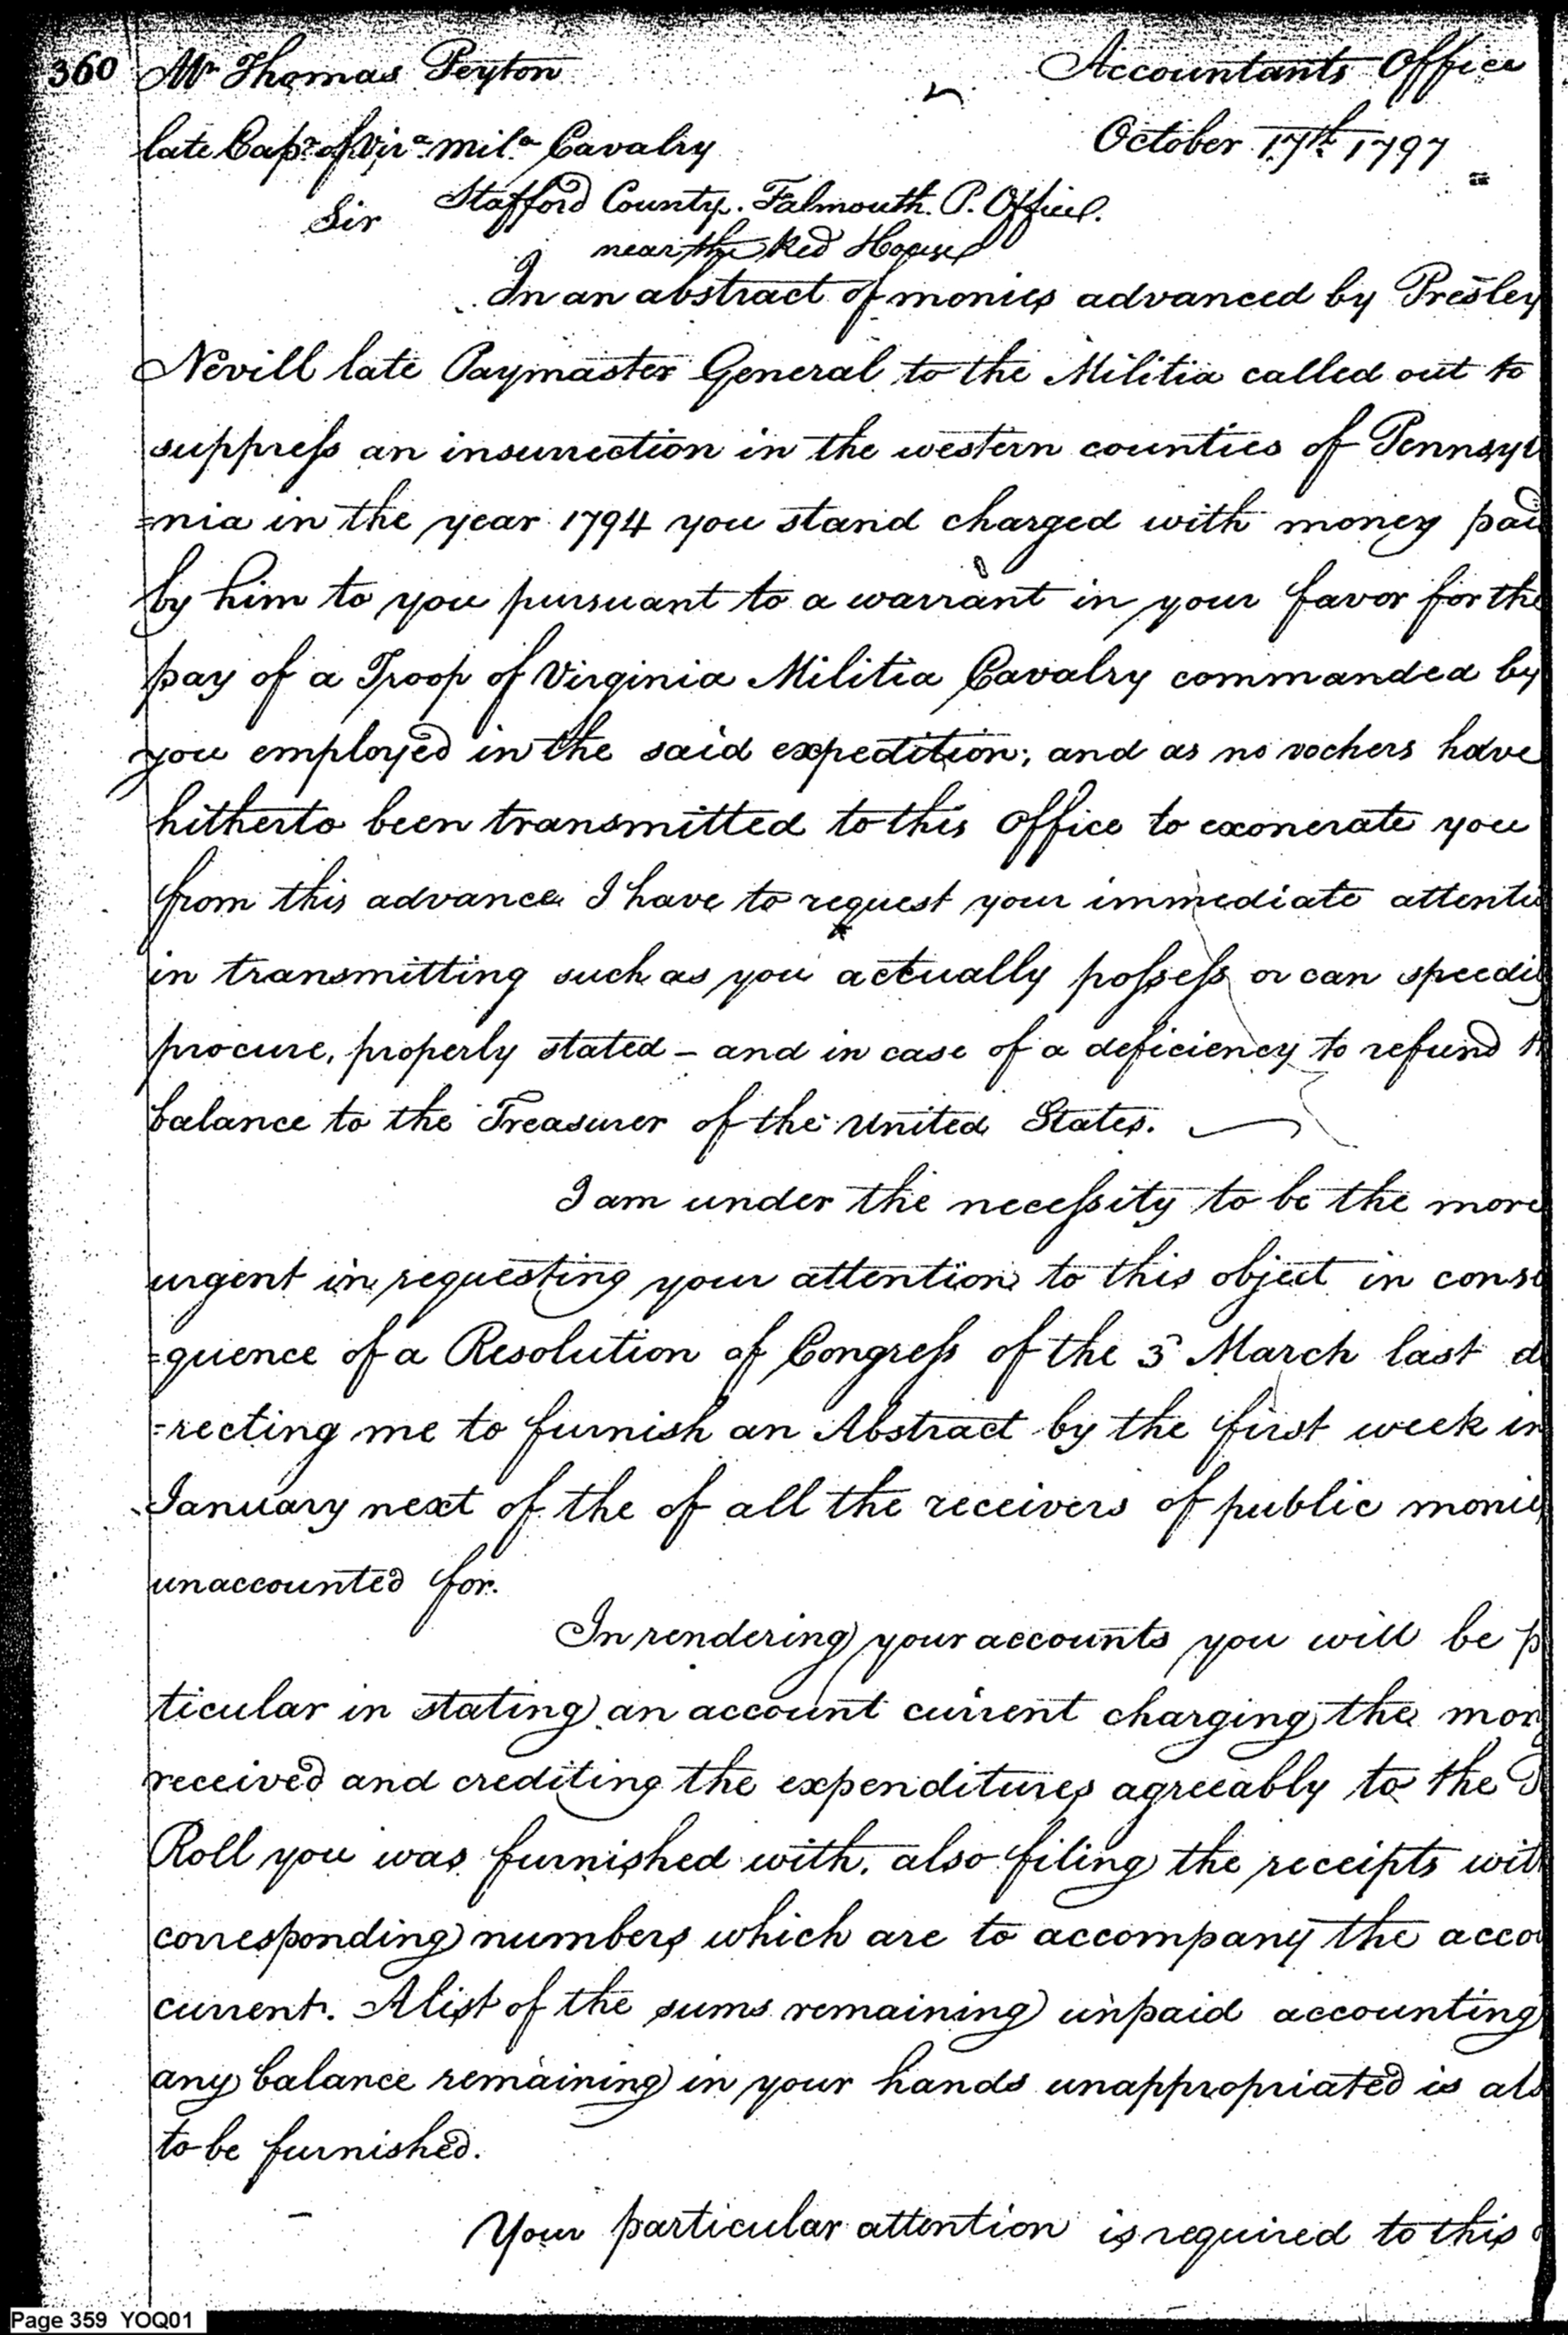 360 Mr Thomas Peyton Accountants Office
late Capt. of Vira. mila. Cavalry October 17th. 1797
Sir Stafford County. Falmouth. P. Office.
near the Red House
In an abstract of monies advanced by Presley
Nevill late Paymaster General to the Militia called out to
suppress an insurrection in the western counties of Pennsyl
=nia in the year 1794 you stand charged with money paid
by him to you pursuant to a warrant in your favor for the
pay of a Troop of Virginia Militia Cavalry commanded by
you employed in the said expedition; and as no vochers have
hitherto been transmitted to this Office to exonerate you
from this advance I have to request your immediate attentio
in transmitting such as you actually possess or can speedily
procure, properly stated - and in case of a deficiency to refund th
balance to the Treasurer of the United States.
I am under the necessity to be the more
urgent in requesting your attention to this object in conse
=quence of a Resolution of Congress of the 3d March last di
=recting me to furnish an Abstract by the first week in
January next of the of all the receivers of public monies
unaccounted for.
In rendering your accounts you will be p
ticular in stating an account current charging the mon
received and crediting the expenditures agreeably to the
Roll you was furnished with, also filing the receipts with
corresponding numbers which are to accompany the acco
current. A list of the sums remaining unpaid accounting
any balance remaining in your hands unappropriated is als
to be furnished.
Your particular attention is required to this
Page 359 YOQ01